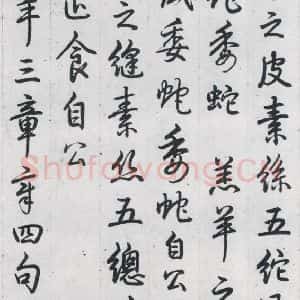 之皮素絲五紽
蛇委蛇 羔羊之
委虵委虵自公
之縫素絲五總
退食自公
羊三章章四句
Shufawang.cn